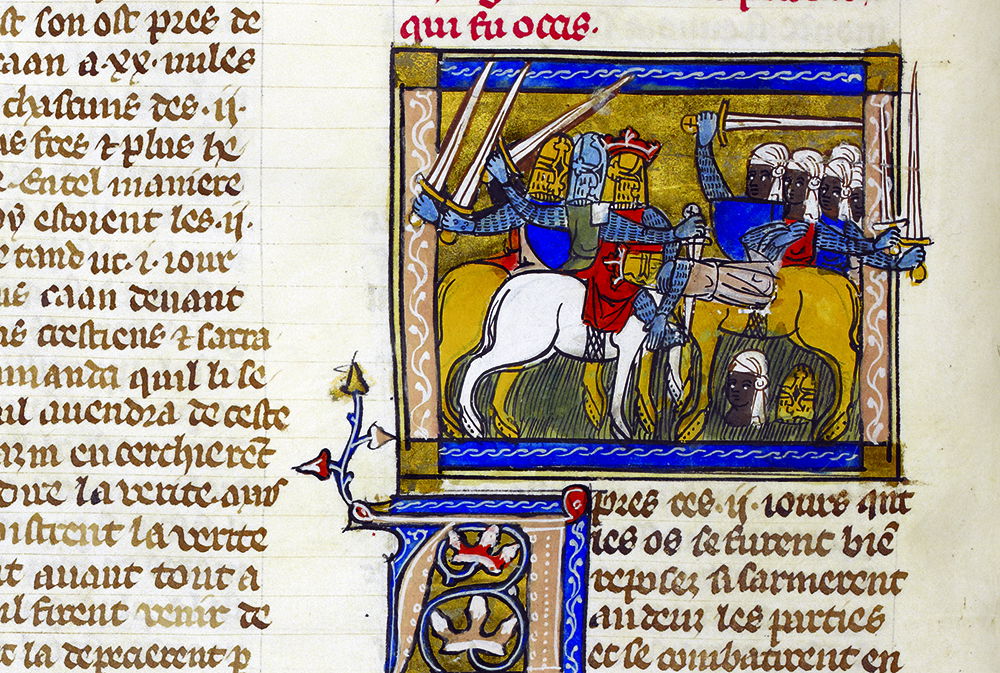 son ost pres de
caan a·xx·milles
chascuns des·ij·
& plus
Entel maniere
estoient les·ij·
·i·iour
caan deuant
crestiens & sarra
quil li se
auendra de ceste
encerchierēt
dire la verite·
la verite
auant tout a
firent venir de
la depecierent p
qui fu occis·
pres ces·ij·iours qnt
les os se furent biē
reposez si sarmerent
andeux les parties
et se combatirent en